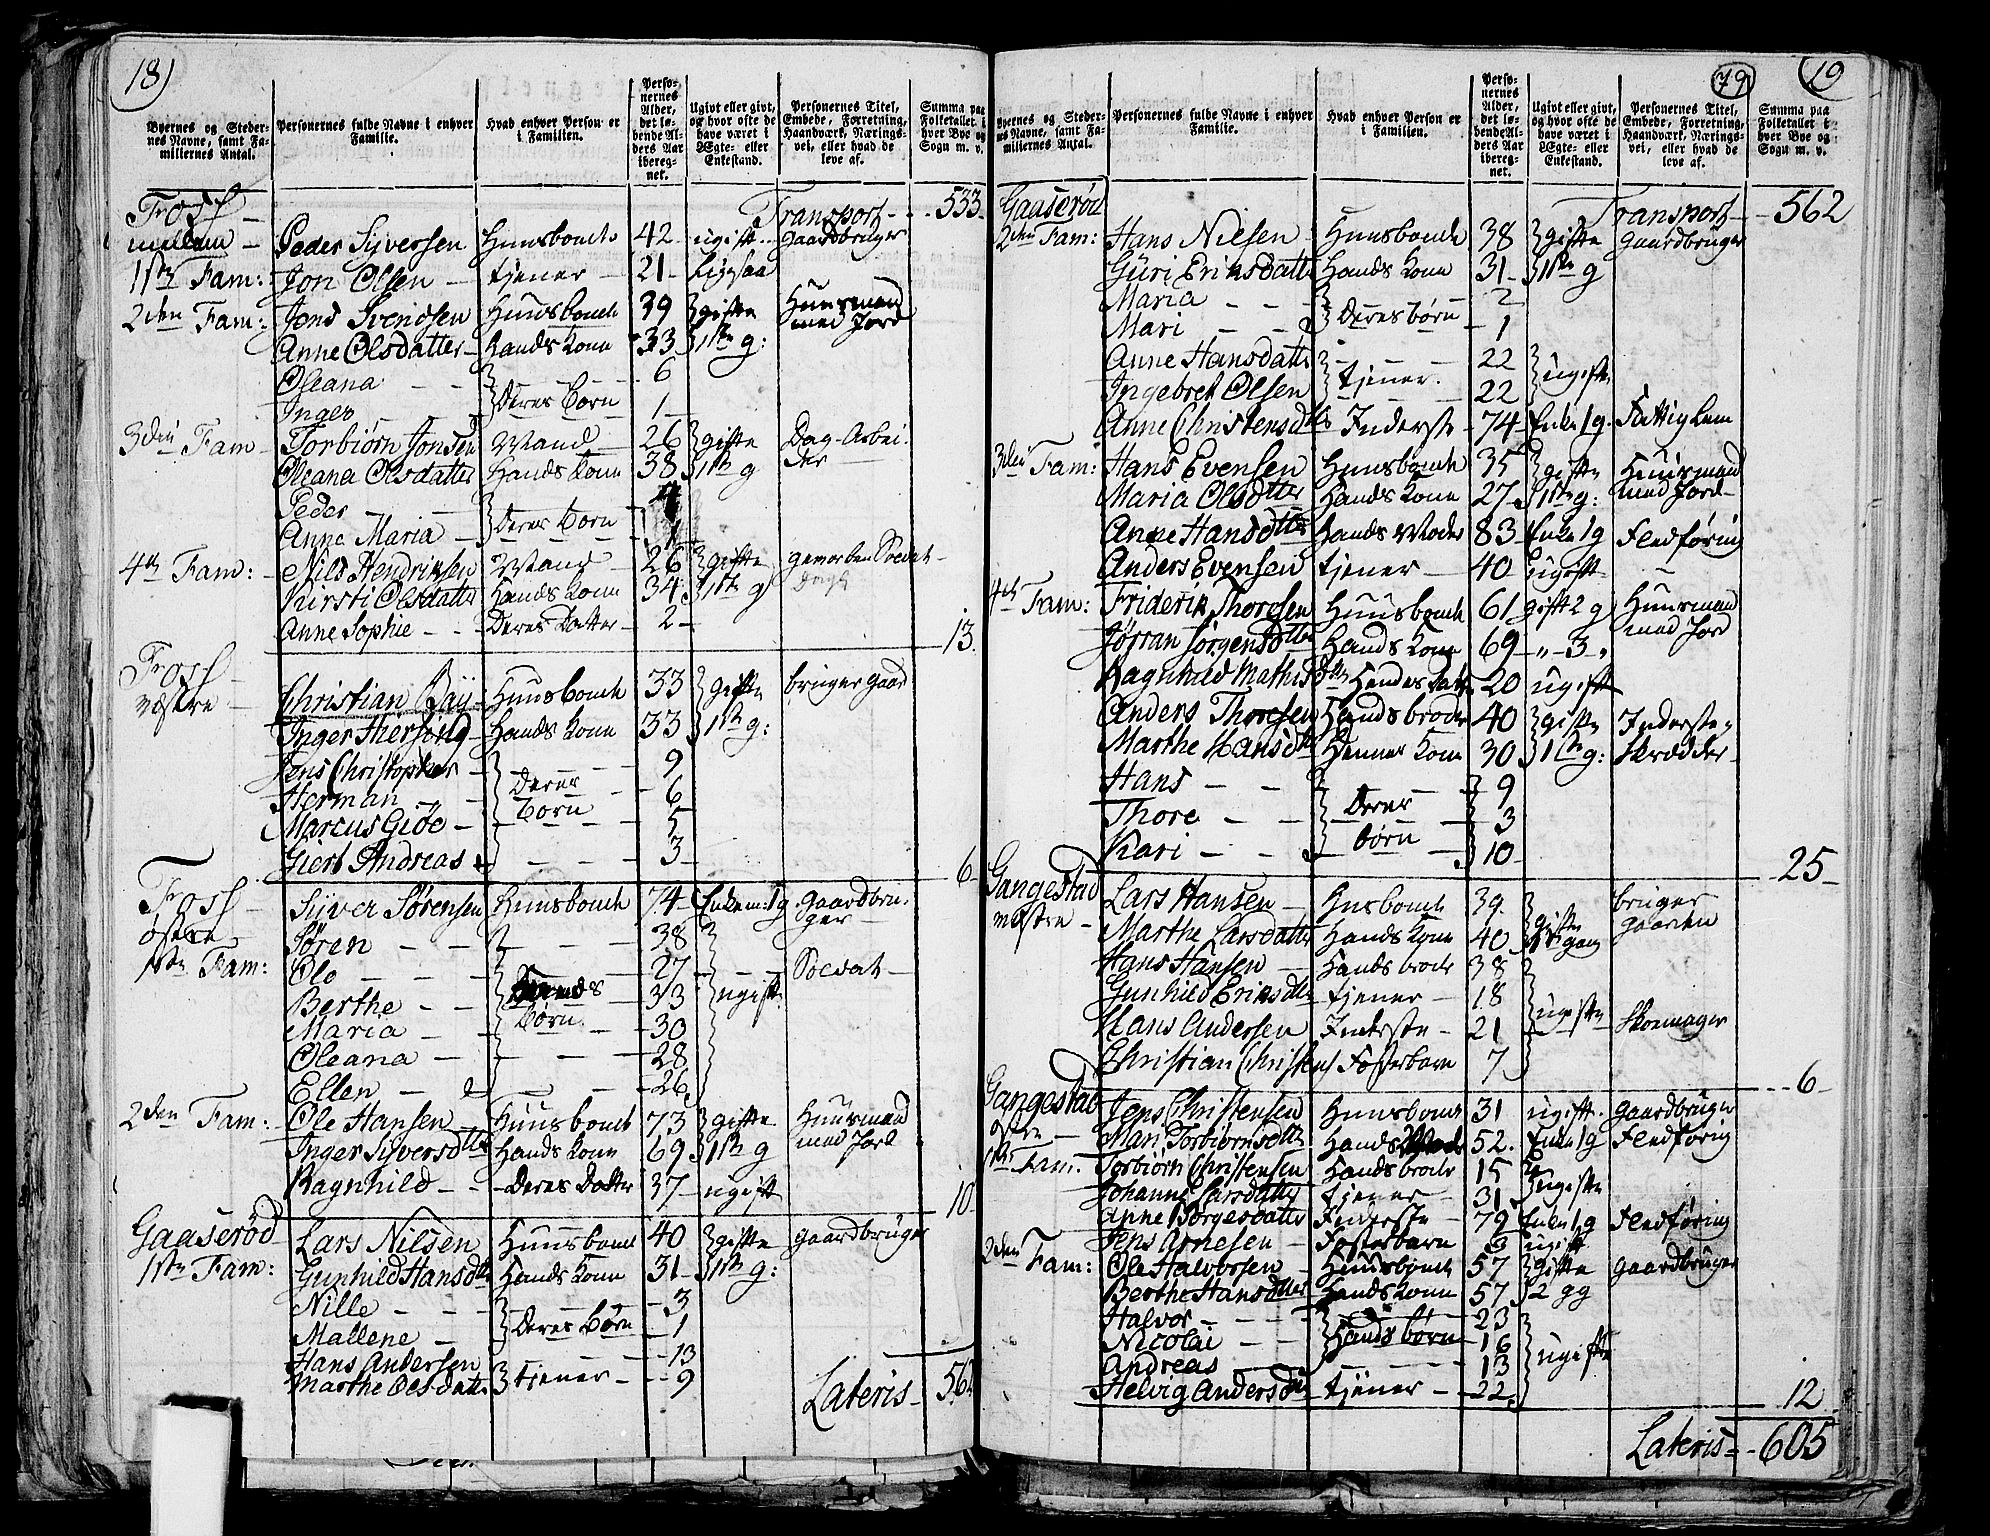 18)
Byernes og Stedernes Navne, samt Familiernes Antal. | Personernes fulde Navne i enhver Familie. | Hvad enhver Person er i Familien. | Personernes Alder, det løbende Alders Aar iberegnet. | Ugivt eller givt, og hvor ofte de have været i Ægte- eller Enkestand. | Personernes Titel, Embede, Forretning, Haandværk, Næringsvei, eller hvad de leve af. | Summa paa Folketallet i hver Bye og Sogn m. v.
Fross Transport - 533
mellem Peder Syversen Huusbonde 42 ugift Gaardbruger
1ste Fam: Jon Olsen tjener 21 ligesaa
2den Fam: Jens Svendsen Huusbonde 39 gifte Huusmand
Anne Olsdatter Hands Kone 33 1ste g: med Jord
Oleana 6
Inger Deres Børn 1
3die Fam Torbiørn Jonsen Mand 26 gifte Dag-Arbei-
Oleana Olsdatter Hands Kone 38 1ste g der
Peder 4
Anne Maria Deres børn 1
4de Fam: Nils Hendriksen Mand 26 gifte geworben Soldat
Kirsti Olsdatter Hands Kone 34 1ste g
Anne Sophie Deres Datter 2 13
Fross
vestre Christian Bay Huusbonde 33 gifte bruger gaard
Inger Hiersing Hands Kone 33 1ste g:
Jens Christopher 9
Herman Deres 6
Marcus Giöe Børn 5
Giert Andreas 3 6
Fross Syver Sørensen Huusbonde 74 Enkem: 1 g Gaardbru-
østre ger
Søren 38
1ste Fam: Ole 27 Soldat
Berthe Hands 33 ugift
Maria Børn 30
Oleana 28
Ellen 26
2den Fam: Ole Hansen Huusbonde 73 gifte Huusmand
Inger Syversdtter Hands Kone 69 1ste g med Jord
Ragnhild Deres Datter 37 ugift 10
Gaaserød Lars Nilsen Huusbonde 40 gifte gaardbruger
1ste Fam: Gunhild Hansdtr Hands Kone 31 1ste g:
Nille 3
Mallene Deres Børn 1
Hans Andersen 13
Marthe Olsdattr tjener 9
Lateris 562
79 19
Byernes og Stedernes Navne, samt Familiernes Antal. | Personernes fulde Navne i enhver Familie. | Hvad enhver Person er i Familien. | Personernes Alder, det løbende Alders Aar iberegnet. | Ugivt eller givt, og hvor ofte de have været i Ægte- eller Enkestand. | Personernes Titel, Embede, Forretning, Haandværk, Næringsvei, eller hvad de leve af. | Summa paa Folketallet i hver Bye og Sogn m. v.
Gaaserød Transport 562
2den Fam: Hans Nielsen Huusbonde 38 gifte Gaardbruger
Guri Eriksdattr Hands Kone 31 1ste g
Maria 2
Mari Deres børn 1
Anne Hansdattr 22
Ingebret Olsen tjener 22 ugifte
Anne Christensdttr Inderste 74 Enke 1 g Fattig Lem
3die Fam: Hans Evensen Huusbonde 35 gifte Huusmand
Maria Olsdtter Hands Kone 27 1ste g: med Jord
Anne Hansdtter Hands Moder 83 Enke 1 g Fledføring
Anders Evensen tjener 40 ugift
4de Fam: Friderik Thoresen Huusbonde 61 gift 2 g Huusmand
Jørran Jørgensdtter Hands Kone 69 " 3 " med Jord
Ragnhild Mathisdttr Hendes Dattr 20 ugift
Anders Thoresen Hands broder 40 gifte Inderste,
Marthe Hansdtr Dennes Kone 30 1ste g: Skredder
Hans 9
Thore Deres 3
Kari børn 10 25
Gangestad Lars Hansen Husbonde 39 bruger
vestre Marthe Larsdatter Hands Kone 40 gifte 1ste gang gaarden
Hans Hansen Hands brodr 38
Gunhild Eriksdttr tjener 18
Hans Andersen Inderste 21 ugifte Skoemager
Christian Christens Fosterbarn 7 6
Gangestad Jens Christensen Huusbonde 31 ugift Gaardbruger
østre Mari Torbiørnsdttr Hands Modr 52 Enke 1 g Fledføring
1ste Fam. Torbiørn Christensen Hands brodr 15
Johanne Larsdatter tjener 31 ugifte
Anne Borgesdatter Inderste 79 Enke 1 g Fledføring
Jens Arnesen Fosterbarn 3 ugift
2den Fam: Ole Halvorsen Huusbonde 57 gifte Gaardbruger
Berthe Hansdtter Hands Kone 57 2 gg
Halvor 23
Nicolai Hands børn 16
Andreas 13 ugifte
Helvig Andersdtr tjener 22 12
Lateris 605